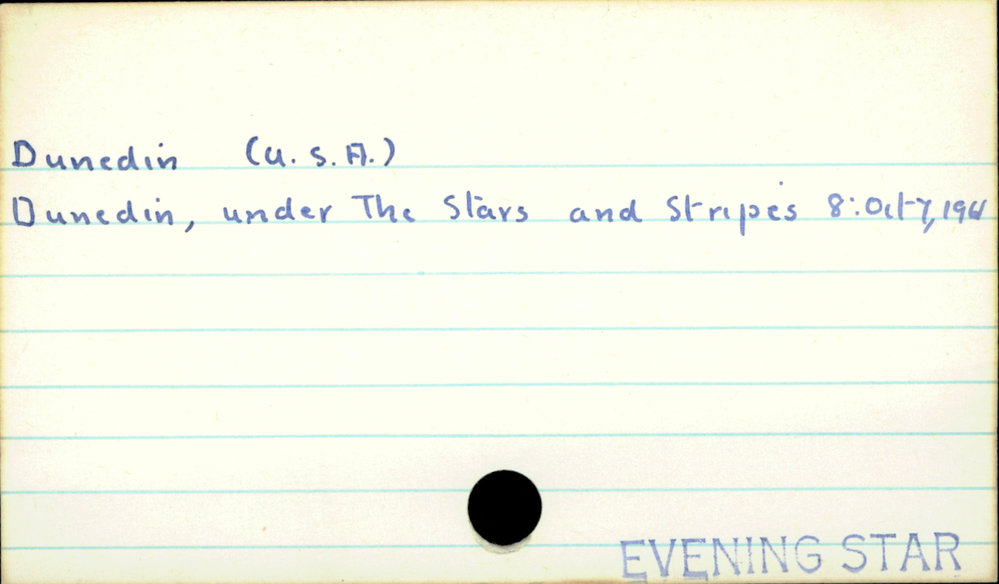 Dunedin (U.S.A.)
Dunedin, under The Stars and Stripes 8: Oct 7, 1961
EVENING STAR